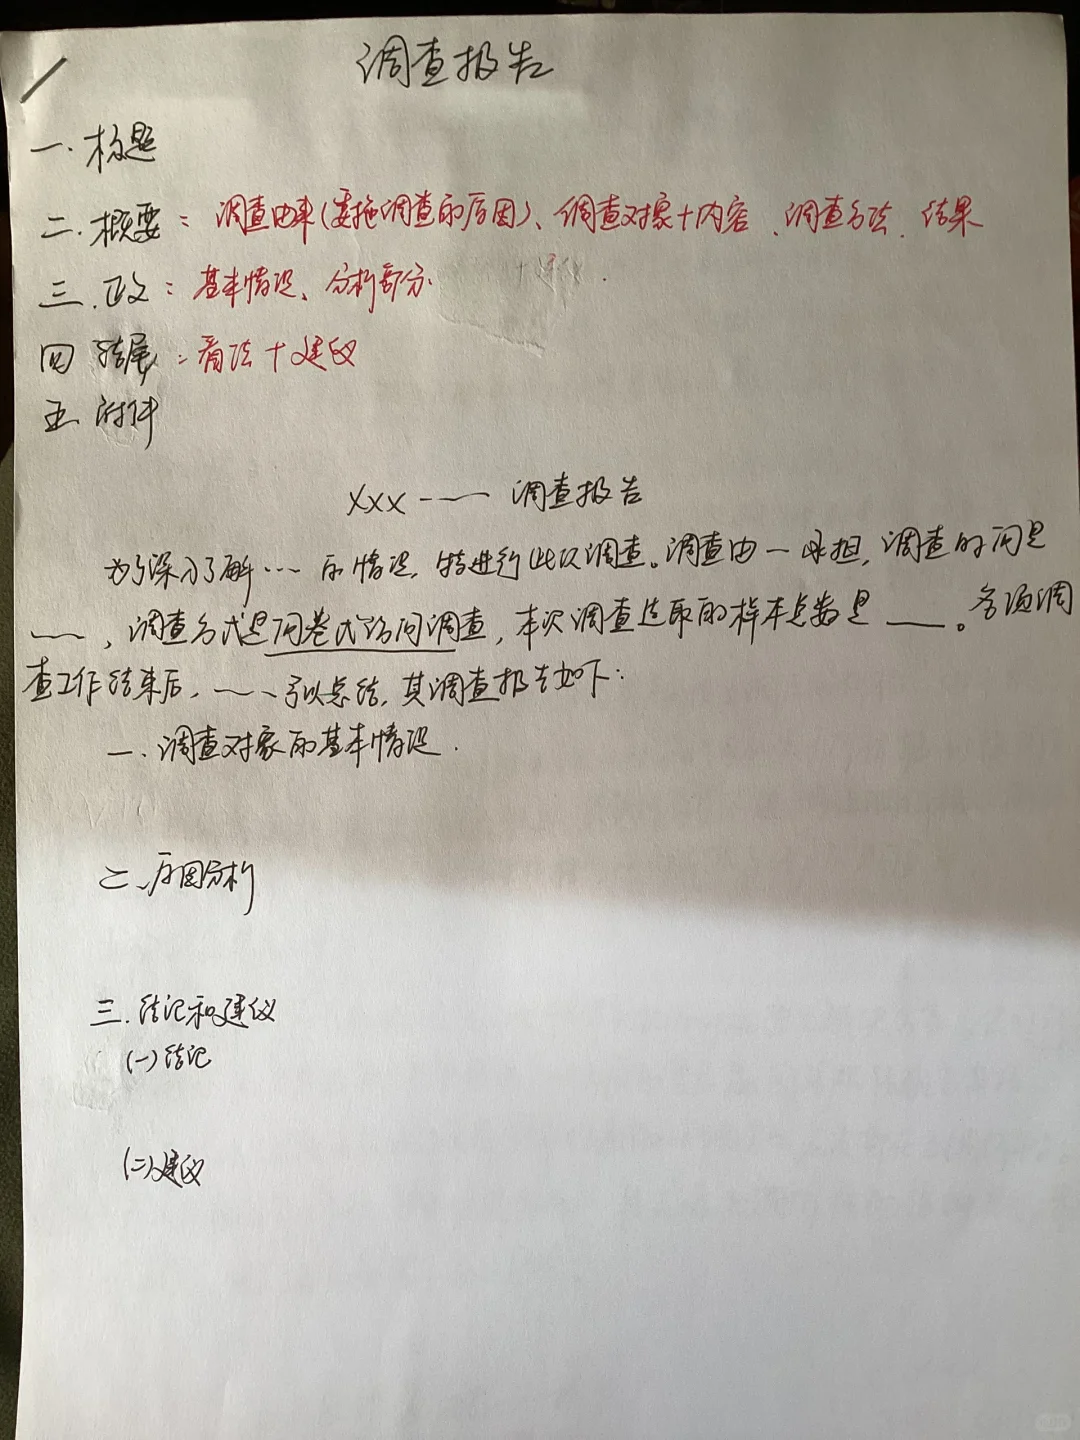 调查报告
一.标题
二.概要：调查由来(委拖调查的原因)、调查对象+内容、调查方法、结果
三.正文：基本情况、分析部分.
四 结尾：看法+建议
五 附件
XXX -—— 调查报告
为了深入了解…的情况,特进行此次调查。调查由一承担,调查时间是
——,调查方式是问卷式访问调查,本次调查选取的样本点数是——。各项调
查工作结束后,——予以总结,其调查报告如下:
一、调查对象的基本情况.
二、原因分析
三.结记和建议
(一)结记
(二)建议